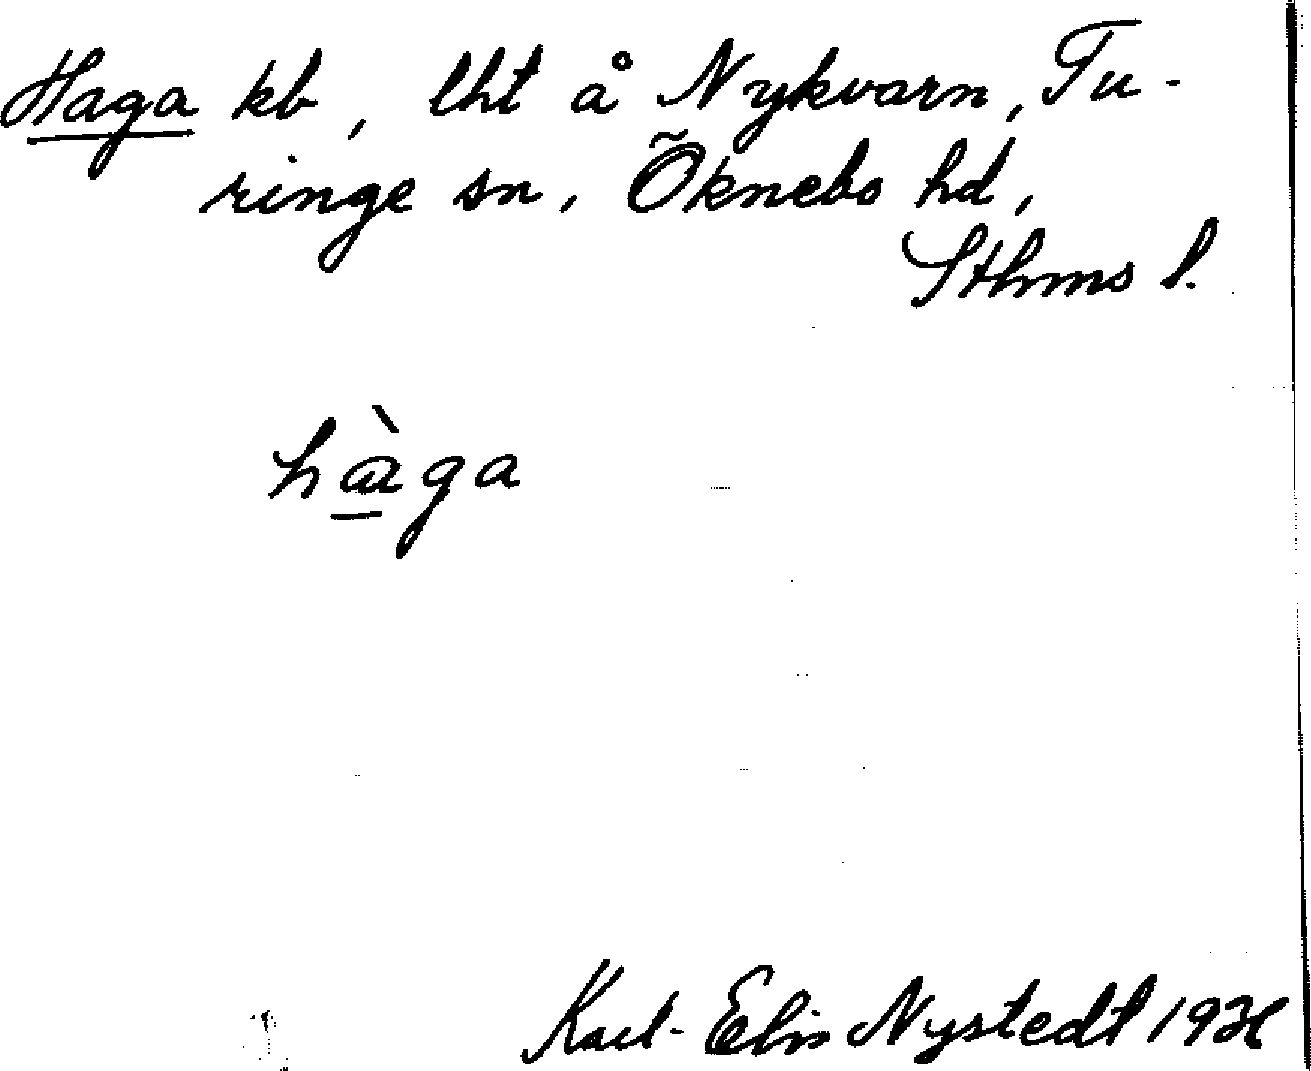 Haga kb, lht å Nykvarn, Tu-
ringe sn, Õknebo hd,
Sthms l.
hàga
Karl-Elis Nystedt